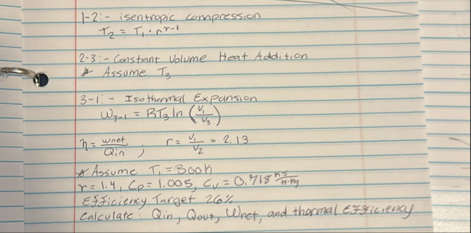 1-2:- isentropic compression
T₂ = T₁ · r^(r-1)
2-3:- Constant Volume Heat Addition
* Assume T₃
3-1:- Isothermal Expansion
W₃₋₁ = RT₃ ln (V₁/V₃)
η = wnet/Qin ; r = V₁/V₂ = 2.13
* Assume T₁ = 300K
r = 1.4, Cp = 1.005, Cv = 0.718 kJ/K·kg
Efficiency Target 26%
Calculate Qin, Qout, Wnet, and thormal Efficiency